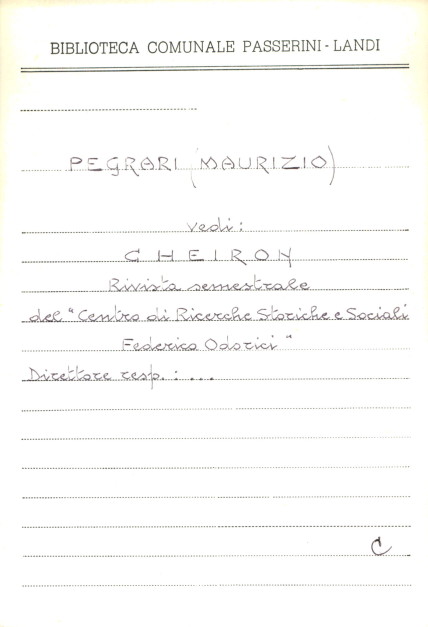 BIBLIOTECA COMUNALE PASSERINI - LANDI
PEGRARI (MAURIZIO)
vedi:
CHEIRON
Rivista semestrale
del "Centro di Ricerche Storiche e Sociali
Federico Odorici"
Direttore resp. : ...
C